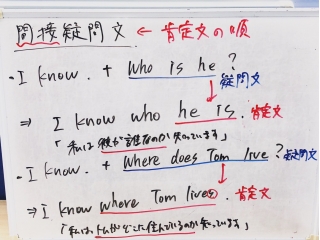 間接疑問文 ← 肯定文の順
- I know. + who is he? 疑問文
⇒ I know who he is. 肯定文
「私は彼が誰なのか知っています」
- I know. + where does Tom live? 疑問文
⇒ I know where Tom lives. 肯定文
「私は、トムがどこに住んでいるのか知っています」